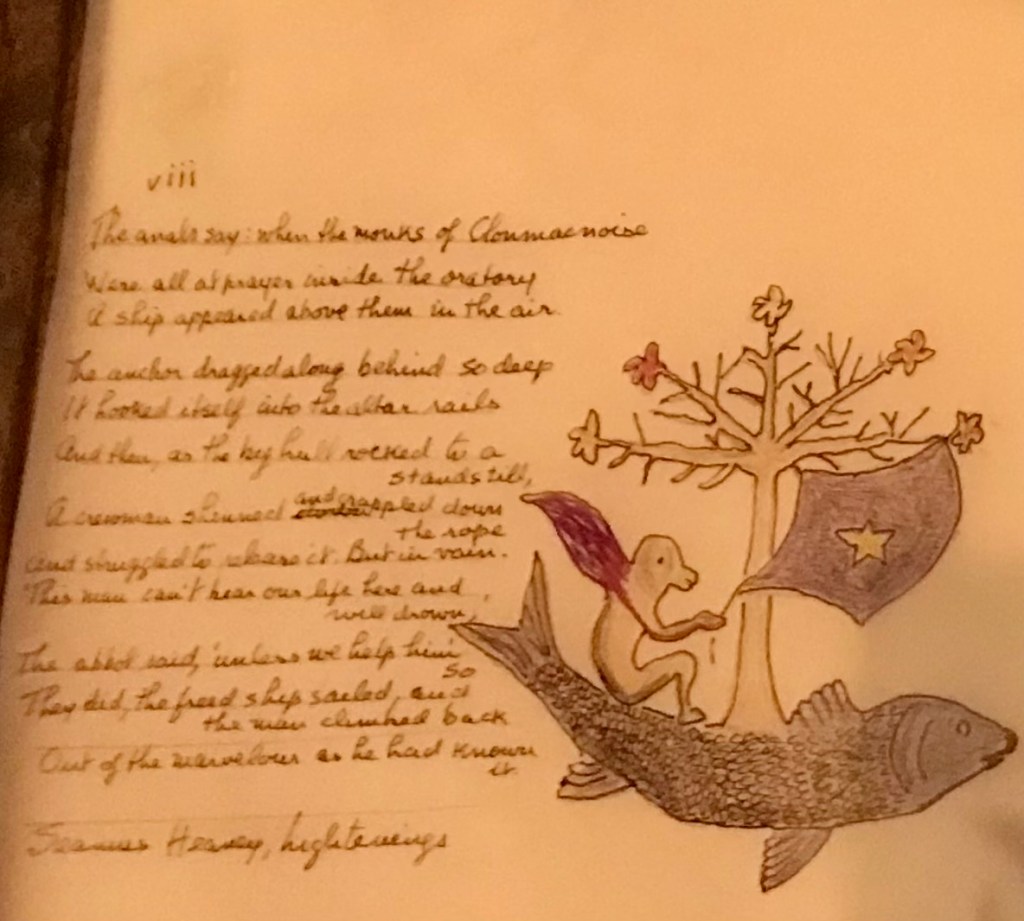 viii
The anals say: when the monks of Clonmacnoise
Were all at prayer inside the oratory
A ship appeared above them in the air.
The anchor dragged along behind so deep
It hooked itself into the altar rails
And then, as the big hull rocked to a
standstill,
A crewman shinned and grappled down
the rope
and struggled to release it. But in vain.
'This man can't bear our life here and
will drown,'
The abbot said, 'unless we help him'
So
They did, the freed ship sailed, and
the man climbed back
Out of the marvelous as he had known
it.
Seamus Heaney, Lightenings